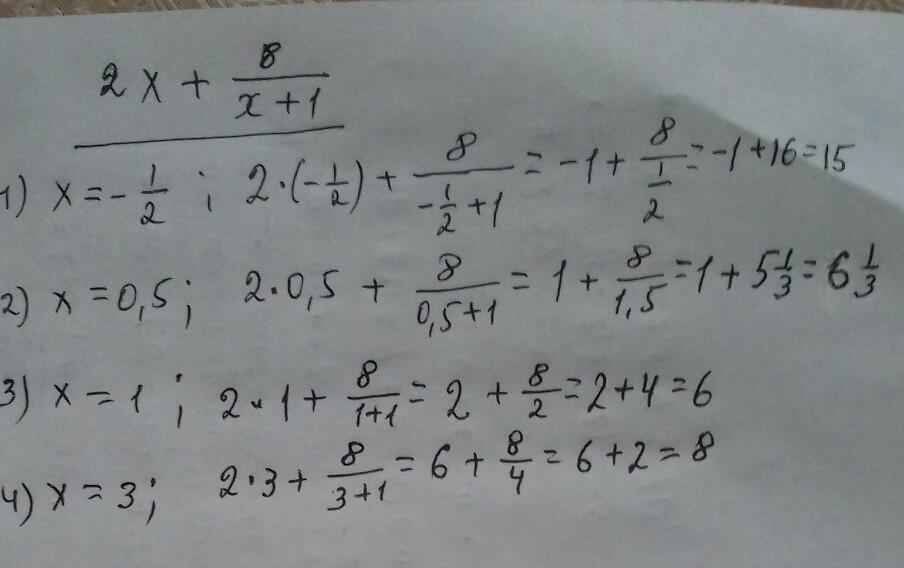 2x + 8/(x+1)
1) x = -1/2 ; 2·(-1/2) + 8/(-1/2+1) = -1 + 8/(1/2) = -1+16 = 15
2) x = 0,5 ; 2·0,5 + 8/(0,5+1) = 1 + 8/1,5 = 1 + 5 1/3 = 6 1/3
3) x = 1 ; 2·1 + 8/(1+1) = 2 + 8/2 = 2+4 = 6
4) x = 3 ; 2·3 + 8/(3+1) = 6 + 8/4 = 6+2 = 8